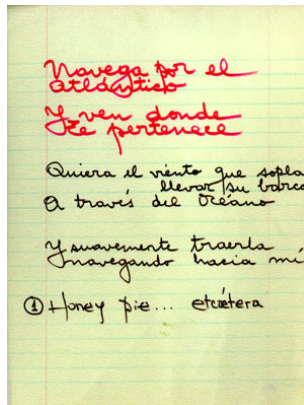 Navega por el
atlántico
Y ven donde
te pertenece
Quiera el viento que sopla
llevar su barco
a través del Océano
Y suavemente traerla
navegando hacia mí
① Honey pie... etcétera